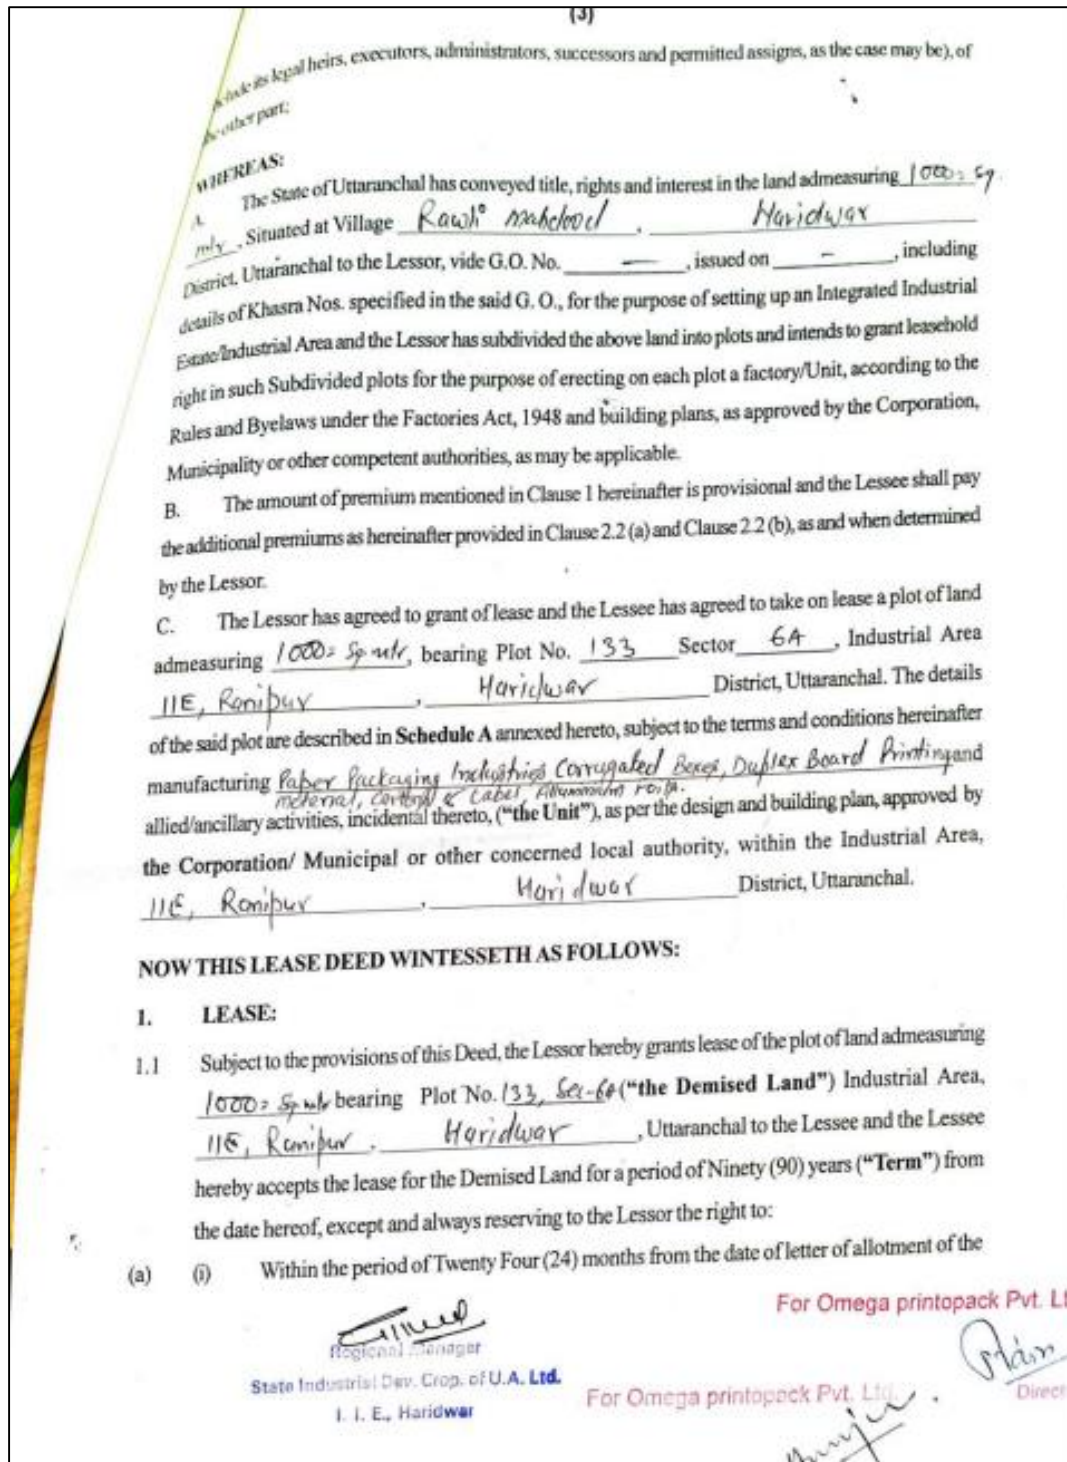 (3)
include its legal heirs, executors, administrators, successors and permitted assigns, as the case may be), of
the other part;
WHEREAS:
A. The State of Uttaranchal has conveyed title, rights and interest in the land admeasuring 1000= Sq.
mtr, Situated at Village Rawli Mahdood, Haridwar
District, Uttaranchal to the Lessor, vide G.O. No. —, issued on –, including
details of Khasra Nos. specified in the said G. O., for the purpose of setting up an Integrated Industrial
Estate/Industrial Area and the Lessor has subdivided the above land into plots and intends to grant leasehold
right in such Subdivided plots for the purpose of erecting on each plot a factory/Unit, according to the
Rules and Byelaws under the Factories Act, 1948 and building plans, as approved by the Corporation,
Municipality or other competent authorities, as may be applicable.
B. The amount of premium mentioned in Clause 1 hereinafter is provisional and the Lessee shall pay
the additional premiums as hereinafter provided in Clause 2.2 (a) and Clause 2.2 (b), as and when determined
by the Lessor.
C. The Lessor has agreed to grant of lease and the Lessee has agreed to take on lease a plot of land
admeasuring 1000= Sq mtr, bearing Plot No. 133 Sector 6A, Industrial Area
IIE, Ranipur, Haridwar District, Uttaranchal. The details
of the said plot are described in Schedule A annexed hereto, subject to the terms and conditions hereinafter
manufacturing Paper Packaging Industries Corrugated Boxes, Duplex Board Printing and
material, & Label, Alluminium foils.
allied/ancillary activities, incidental thereto, ("the Unit"), as per the design and building plan, approved by
the Corporation/ Municipal or other concerned local authority, within the Industrial Area,
IIE, Ranipur, Haridwar District, Uttaranchal.
NOW THIS LEASE DEED WINTESSETH AS FOLLOWS:
1. LEASE:
1.1 Subject to the provisions of this Deed, the Lessor hereby grants lease of the plot of land admeasuring
1000= Sq mtr bearing Plot No. 133, Sec-6A ("the Demised Land") Industrial Area,
IIE, Ranipur, Haridwar, Uttaranchal to the Lessee and the Lessee
hereby accepts the lease for the Demised Land for a period of Ninety (90) years ("Term") from
the date hereof, except and always reserving to the Lessor the right to:
(a) (i) Within the period of Twenty Four (24) months from the date of letter of allotment of the
For Omega printopack Pvt. Lt
Regional Manager
State Industrial Dev. Crop. of U.A. Ltd.
I. I. E., Haridwar
For Omega printopack Pvt. Ltd.
Direct